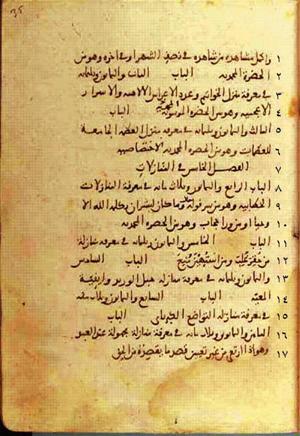 ٣٥
١ واكمل مشاهده من شاهده في نصف الشهر او في اخره وهو من
٢ الحضرة المحمديه الباب الثاني والثمانون وثلثمايه
٣ في معرفة منزل الخواتيم وعدد الاعراس الالهيه والاسرار
٤ الاعجميه وهو من الحضرة الموسويه المحمديه الباب
٥ الثالث والثمانون وثلثمايه في معرفة منزل العظمه الجامعة
٦ للعظمات وهو من الحضرة المحمديه الاختصاصيه
٧ الفصل الخامس في المنازلات
٨ الباب الرابع والثمانون وثلاث مائه في معرفة المنازلات
٩ الخطابيه وهو من سر قوله وما كان لبشر ان يكلمه الله الا
١٠ وحيا او من ورا حجاب وهو من الحضرة المحمديه
١١ الباب الخامس والثمانون وثلثمايه في معرفة منازلة
١٢ من حقر غلب ومن استهين منع الباب السادس
١٣ والثمانون وثلثمايه في معرفة منازلة حبل الوريد واينية
١٤ المعيه الباب السابع والثمانون وثلاث مئه
١٥ في معرفة منازله التواضع الكبريائي الباب
١٦ الثامن والثمانون وثلاث مائه في معرفة منازلة مجهولة عند العبد
١٧ وهو اذا ارتقى من غير تعيين قصد ما يقصده من الحق